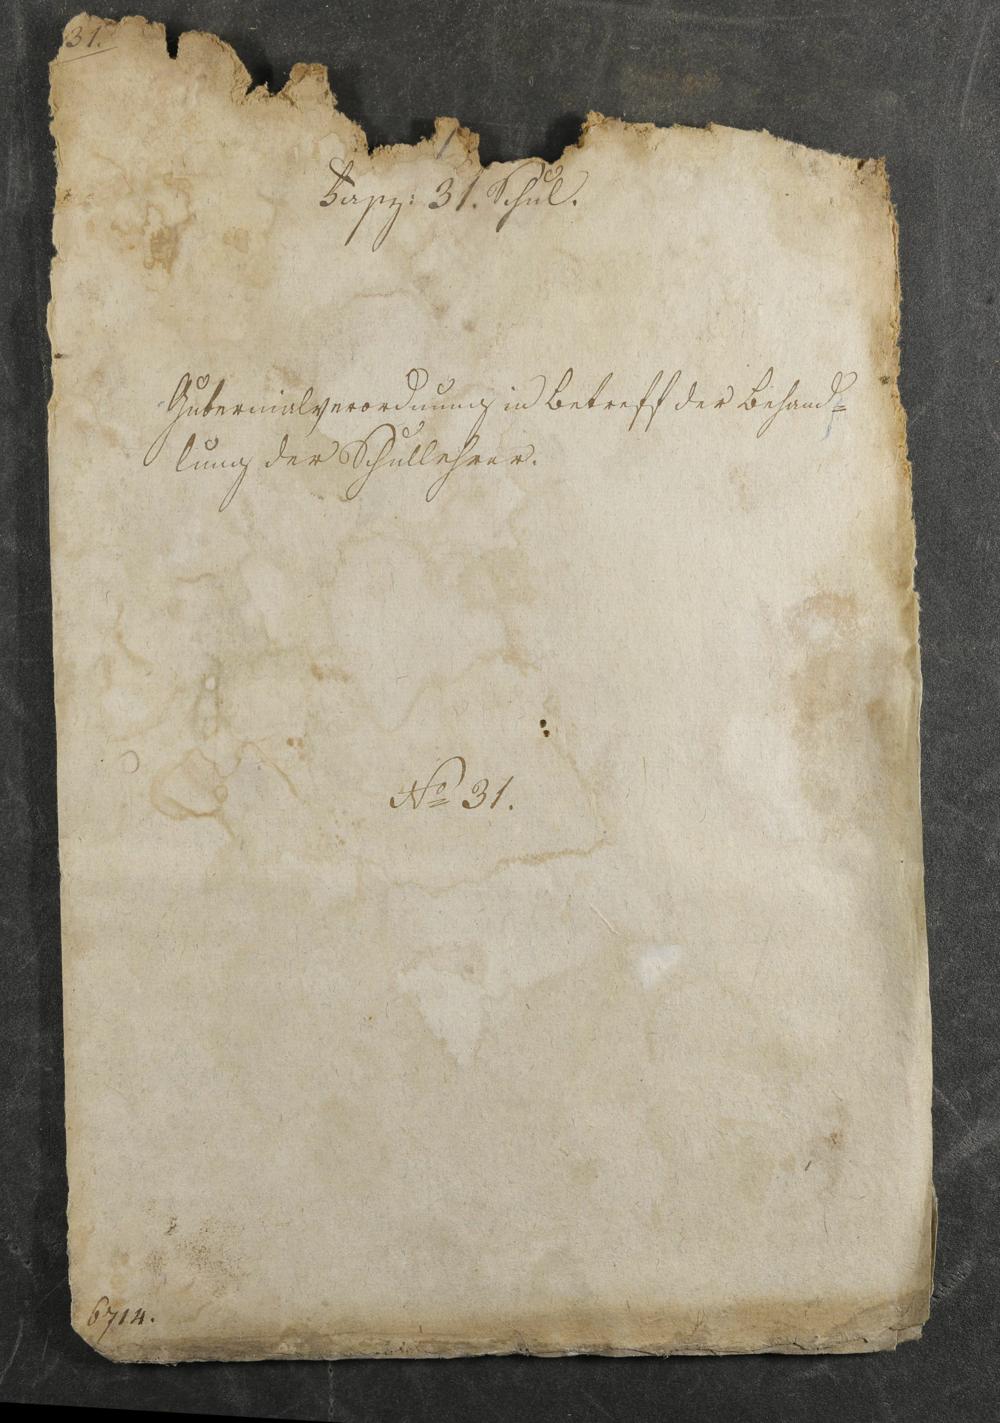 31.
Fasz: 31. Schul.
Gubernialverordnung in Betreff der Behand=
lung der Schullehrer.
No 31.
6714.